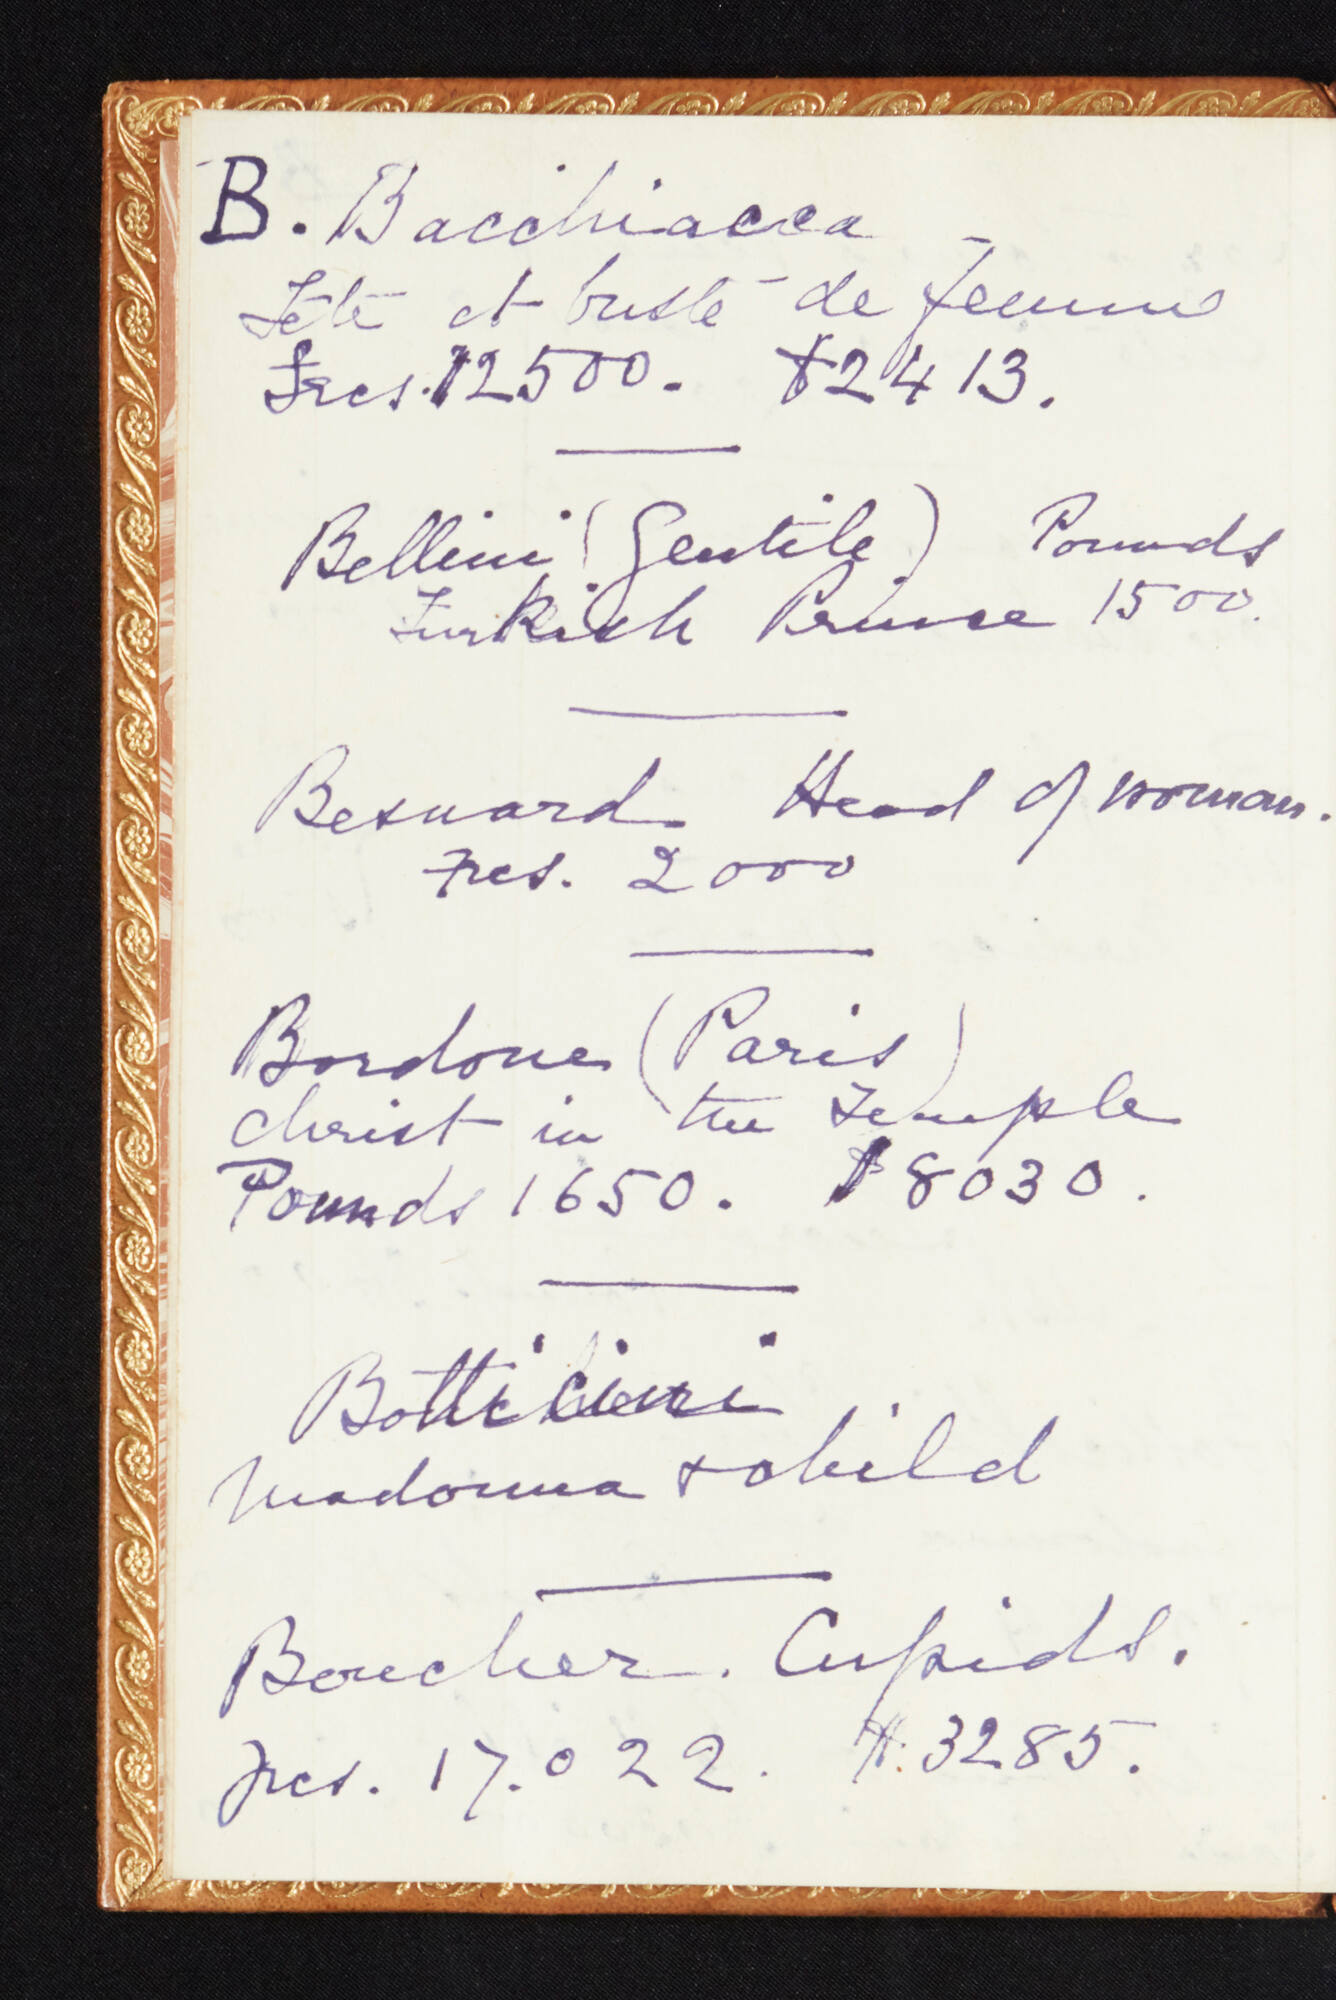 B. Bacchiacca
Tête et buste de femme
Frcs. 12500. $2413.
Bellini (Gentile) Pounds
Turkish Prince 1500.
Besnard. Head of woman.
Frcs. 2000
Bordone (Paris)
Christ in the Temple
Pounds 1650. $8030.
Botticini
Madonna & child
Boucher. Cupids.
Frcs. 17.022. $.3285.